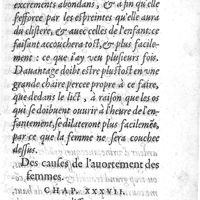 excrements abondans, & à fin qu'elle
s'efforce par les espreintes qu'elle aura
du clistere, & auec celles de l'enfant: ce
faisant accouchera tost, & plus facile-
ment: ce que i'ay veu plusieurs fois.
Dauantage doibt estre plustost en une
grande chaire percee propre à ce faire,
que dedans le lict, à raison que les os
qui se doibuent ouurir à l'heure de l'en-
fantement, se dilateront plus facilemēt,
par ce que la femme ne sera couchee
dessus.
Des causes de l'auortement des
femmes.
CHAP. XXXVII.